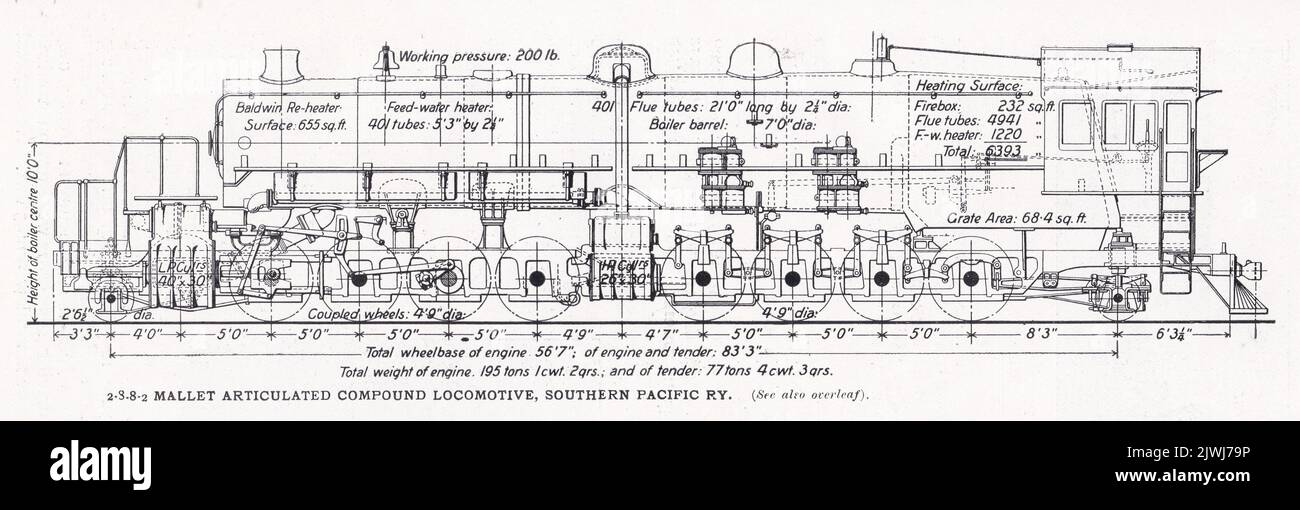 Working pressure: 200 lb.
Baldwin Re-heater
Surface: 655 sq. ft.
Feed-water heater:
401 tubes: 5'3" by 2¼"
401 Flue tubes: 21'0" long by 2¼" dia:
Boiler barrel: 7'0" dia:
Heating Surface:
Firebox: 232 sq. ft.
Flue tubes: 4941 "
F.-w. heater: 1220 "
Total: 6393 "
Grate Area: 68·4 sq. ft.
Height of boiler centre 10'0"
L.P. Cylrs
40" x 30"
H.P. Cylrs
26" x 30"
2'6½" dia.
Coupled wheels: 4'9" dia:
4'9" dia:
3'3" 4'0" 5'0" 5'0" 5'0" 5'0" 4'9" 4'7" 5'0" 5'0" 5'0" 8'3" 6'3¼"
Total wheelbase of engine 56'7"; of engine and tender: 83'3"
Total weight of engine. 195 tons 1 cwt. 2 qrs.; and of tender: 77 tons 4 cwt. 3 qrs.
2-8-8-2 MALLET ARTICULATED COMPOUND LOCOMOTIVE, SOUTHERN PACIFIC RY. (See also overleaf).
alamy
Image ID: 2JWJ79P
www.alamy.com